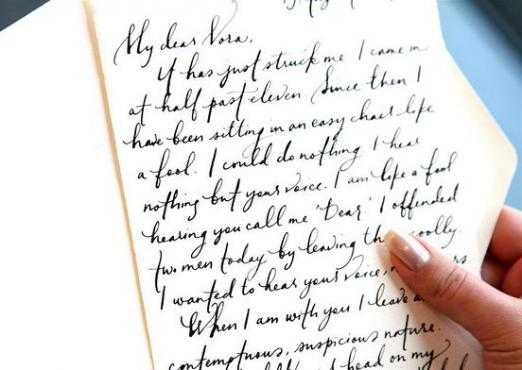 My dear Nora,
It has just struck me. I came in
at half past eleven. Since then I
have been sitting in an easy chair like
a fool. I could do nothing. I hear
nothing but your voice. I am like a fool
hearing you call me 'Dear'. I offended
two men today by leaving coolly.
I wanted to hear your voice,
When I am with you I leave
contemptuous, suspicious nature.
head on my